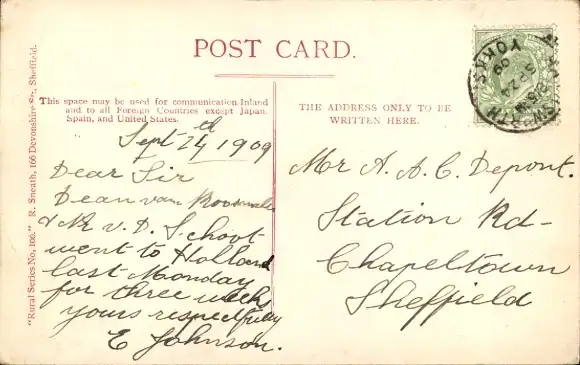 POST CARD.
This space may be used for communication Inland
and to all Foreign Countries except Japan,
Spain, and United States.
Sept 24th 1909
Dear Sir
Dean van
& Mr v. D. Schoot
went to Holland
last Monday
for three weeks
yours respectfully
E Johnson.
THE ADDRESS ONLY TO BE
WRITTEN HERE.
Mr A. A. C. Depont.
Station Rd-
Chapeltown
Sheffield
"Rural Series No, 100." R. Sneath, 166 Devonshire St., Sheffield.
YORKS
SP 24
09